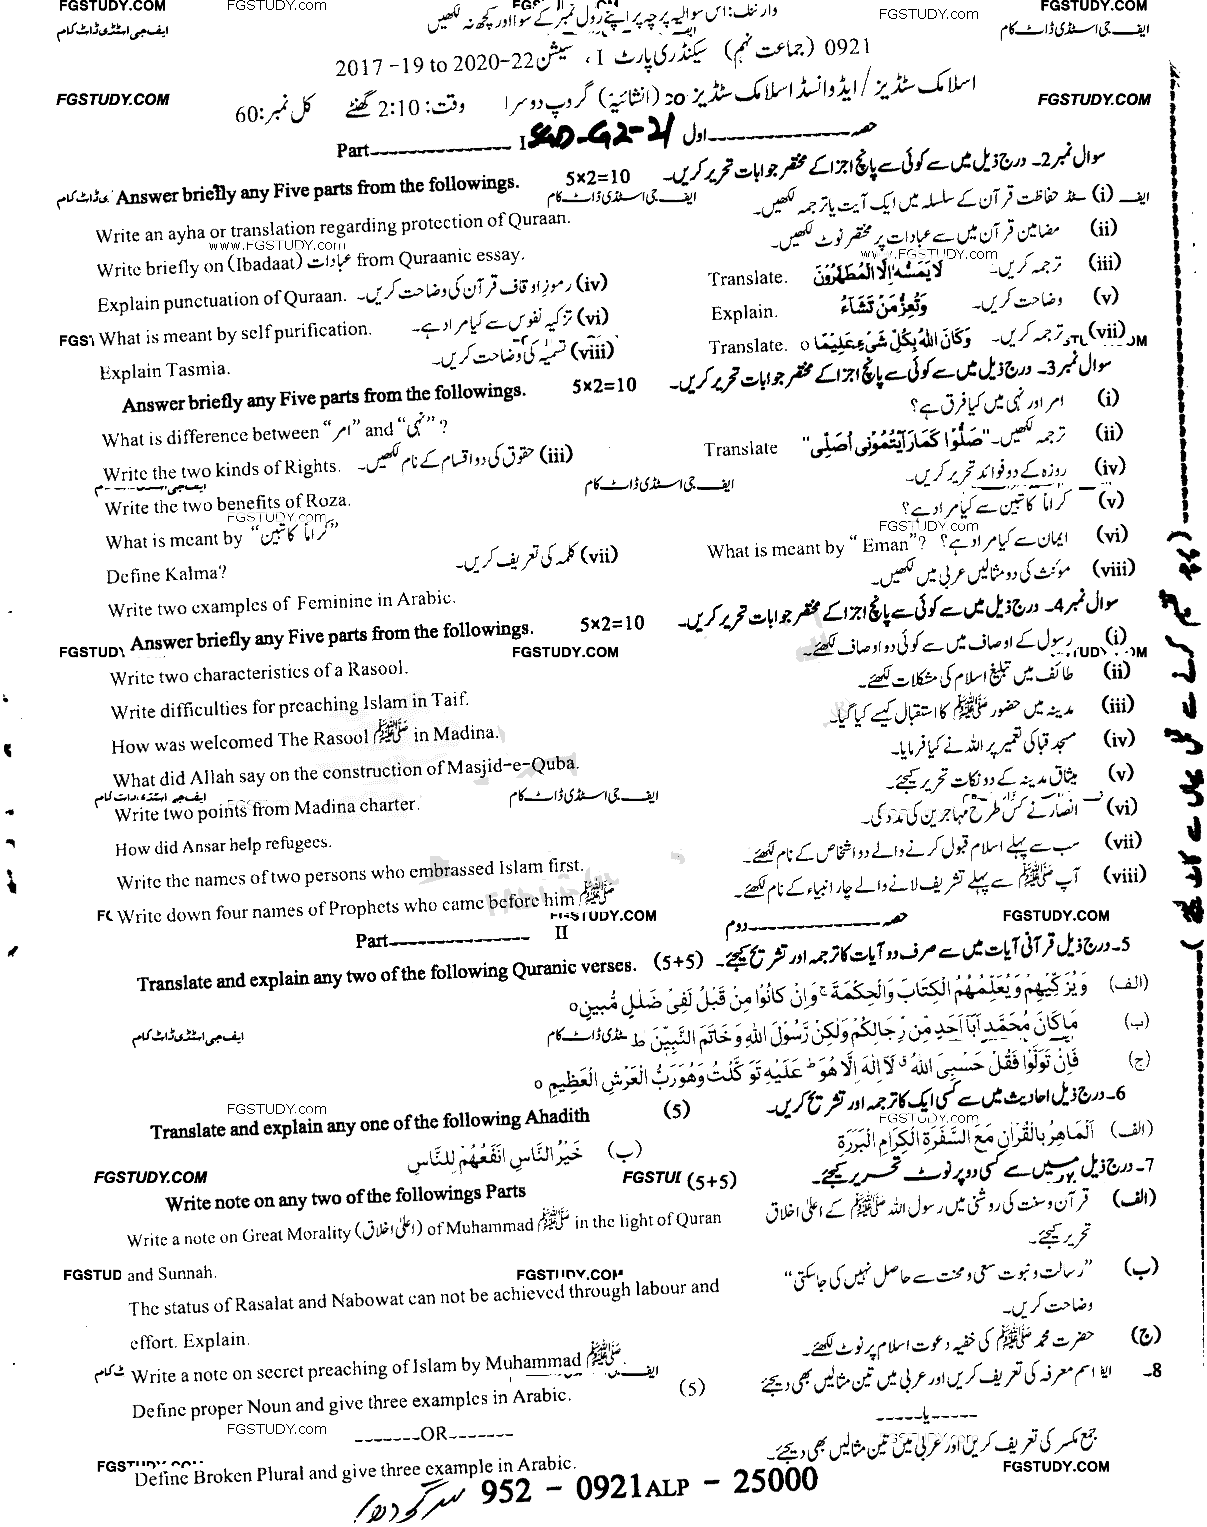 FGSTUDY.COM FGSTUDY.com FGSTUDY.com FGSTUDY.COM
وارننگ: اس سوالیہ پرچہ پر اپنے رول نمبر کے سوا اور کچھ نہ لکھیں
ایف جی اسٹڈی ڈاٹ کام ایف جی اسٹڈی ڈاٹ کام
0921 (جماعت نہم) سیکنڈری پارٹ I ، سیشن 2020-22 to 2017-19
FGSTUDY.COM اسلامک سٹڈیز / ایڈوانسڈ اسلامک سٹڈیز (انشائیہ) گروپ دوسرا وقت: 2:10 گھنٹے کل نمبر: 60 FGSTUDY.COM
Part I SGD-G2-21 حصہ اول
سوال نمبر 2۔ درج ذیل میں سے کوئی سے پانچ اجزا کے مختصر جوابات تحریر کریں۔ 5×2=10
Answer briefly any Five parts from the followings.
ایف جی اسٹڈی ڈاٹ کام
(i) حفاظت قرآن کے سلسلہ میں ایک آیت یا ترجمہ لکھیں۔
Write an ayha or translation regarding protection of Quraan.
(ii) مضامین قرآن میں سے عبادات پر مختصر نوٹ لکھیں۔
www.FGSTUDY.com www.FGSTUDY.com
Write briefly on (Ibadaat) عبادات from Quraanic essay.
(iii) ترجمہ کریں۔ لَا يَمَسُّهٗٓ اِلَّا الْمُطَهَّرُوْنَ Translate.
(iv) رموز اوقاف قرآن کی وضاحت کریں۔ Explain punctuation of Quraan.
(v) وضاحت کریں۔ وَتُعِزُّ مَنْ تَشَآءُ Explain.
(vi) تزکیہ نفوس سے کیا مراد ہے۔ What is meant by self purification.
(vii) ترجمہ کریں۔ وَكَانَ اللّٰهُ بِكُلِّ شَیْءٍ عَلِيْمًا o Translate.
(viii) تسمیہ کی وضاحت کریں۔ Explain Tasmia.
سوال نمبر 3۔ درج ذیل میں سے کوئی سے پانچ اجزا کے مختصر جوابات تحریر کریں۔ 5×2=10
Answer briefly any Five parts from the followings.
(i) امر اور نہی میں کیا فرق ہے؟
What is difference between “امر” and “نہی” ?
(ii) ترجمہ لکھیں۔ "صَلُّوْا كَمَا رَاَيْتُمُوْنِیْ اُصَلِّیْ" Translate
(iii) حقوق کی دو اقسام کے نام لکھیں۔ Write the two kinds of Rights.
(iv) روزہ کے دو فوائد تحریر کریں۔
ایف جی اسٹڈی ڈاٹ کام
Write the two benefits of Roza.
(v) کراماً کاتبین سے کیا مراد ہے؟
FGSTUDY.com FGSTUDY.com
What is meant by “کراماً کاتبین”
(vi) ایمان سے کیا مراد ہے؟ What is meant by “ Eman”?
(vii) کلمہ کی تعریف کریں۔ Define Kalma?
(viii) مؤنث کی دو مثالیں عربی میں لکھیں۔
Write two examples of Feminine in Arabic.
سوال نمبر 4۔ درج ذیل میں سے کوئی سے پانچ اجزا کے مختصر جوابات تحریر کریں۔ 5×2=10
Answer briefly any Five parts from the followings.
FGSTUDY.COM
(i) رسول کے اوصاف میں سے کوئی دو اوصاف لکھئے۔
Write two characteristics of a Rasool.
(ii) طائف میں تبلیغ اسلام کی مشکلات لکھئے۔
Write difficulties for preaching Islam in Taif.
(iii) مدینہ میں حضور ﷺ کا استقبال کیسے کیا گیا۔
How was welcomed The Rasool ﷺ in Madina.
(iv) مسجد قبا کی تعمیر پر اللہ نے کیا فرمایا۔
What did Allah say on the construction of Masjid-e-Quba.
(v) میثاق مدینہ کے دو نکات تحریر کیجئے۔
ایف جی اسٹڈی ڈاٹ کام ایف جی اسٹڈی ڈاٹ کام
Write two points from Madina charter.
(vi) انصار نے کس طرح مہاجرین کی مدد کی۔
How did Ansar help refugees.
(vii) سب سے پہلے اسلام قبول کرنے والے دو اشخاص کے نام لکھئے۔
Write the names of two persons who embrassed Islam first.
(viii) آپ ﷺ سے پہلے تشریف لانے والے چار انبیاء کے نام لکھئے۔
Write down four names of Prophets who came before him ﷺ
FGSTUDY.COM FGSTUDY.COM
Part II حصہ دوم
5۔ درج ذیل قرآنی آیات میں سے صرف دو آیات کا ترجمہ اور تشریح کیجئے۔ (5+5)
Translate and explain any two of the following Quranic verses.
(الف) وَيُزَكِّيْهِمْ وَيُعَلِّمُهُمُ الْكِتَابَ وَالْحِكْمَةَ ۚ وَاِنْ كَانُوْا مِنْ قَبْلُ لَفِیْ ضَلٰلٍ مُّبِيْنٍ o
(ب) مَا كَانَ مُحَمَّدٌ اَبَآ اَحَدٍ مِّنْ رِّجَالِكُمْ وَلٰكِنْ رَّسُوْلَ اللّٰهِ وَخَاتَمَ النَّبِيّٖنَ ط
ایف جی اسٹڈی ڈاٹ کام
(ج) فَاِنْ تَوَلَّوْا فَقُلْ حَسْبِیَ اللّٰهُ لَآ اِلٰهَ اِلَّا هُوَ عَلَيْهِ تَوَكَّلْتُ وَهُوَ رَبُّ الْعَرْشِ الْعَظِيْمِ o
6۔ درج ذیل احادیث میں سے کسی ایک کا ترجمہ اور تشریح کریں۔ (5)
FGSTUDY.com FGSTUDY.com
Translate and explain any one of the following Ahadith
(الف) اَلْمَاهِرُ بِالْقُرْاٰنِ مَعَ السَّفَرَةِ الْكِرَامِ الْبَرَرَةِ
(ب) خَيْرُ النَّاسِ اَنْفَعُهُمْ لِلنَّاسِ
7۔ درج ذیل میں سے کسی دو پر نوٹ تحریر کیجئے۔ (5+5)
FGSTUDY.COM
Write note on any two of the followings Parts
(الف) قرآن و سنت کی روشنی میں رسول اللہ ﷺ کے اعلیٰ اخلاق
تحریر کیجئے۔
Write a note on Great Morality (اعلیٰ اخلاق) of Muhammad ﷺ in the light of Quran
and Sunnah.
FGSTUDY.COM
(ب) "رسالت و نبوت سعی و محنت سے حاصل نہیں کی جا سکتی"
وضاحت کریں۔
The status of Rasalat and Nabowat can not be achieved through labour and
effort. Explain.
(ج) حضرت محمد ﷺ کی خفیہ دعوت اسلام پر نوٹ لکھئے۔
Write a note on secret preaching of Islam by Muhammad ﷺ.
8۔ اسم معرفہ کی تعریف کریں اور عربی میں تین مثالیں بھی دیجئے (5)
Define proper Noun and give three examples in Arabic.
FGSTUDY.com
-------OR------- -----یا-----
جمع مکسر کی تعریف کریں اور عربی میں تین مثالیں بھی دیجئے۔
Define Broken Plural and give three example in Arabic.
FGSTUDY.COM
952 - 0921 ALP - 25000